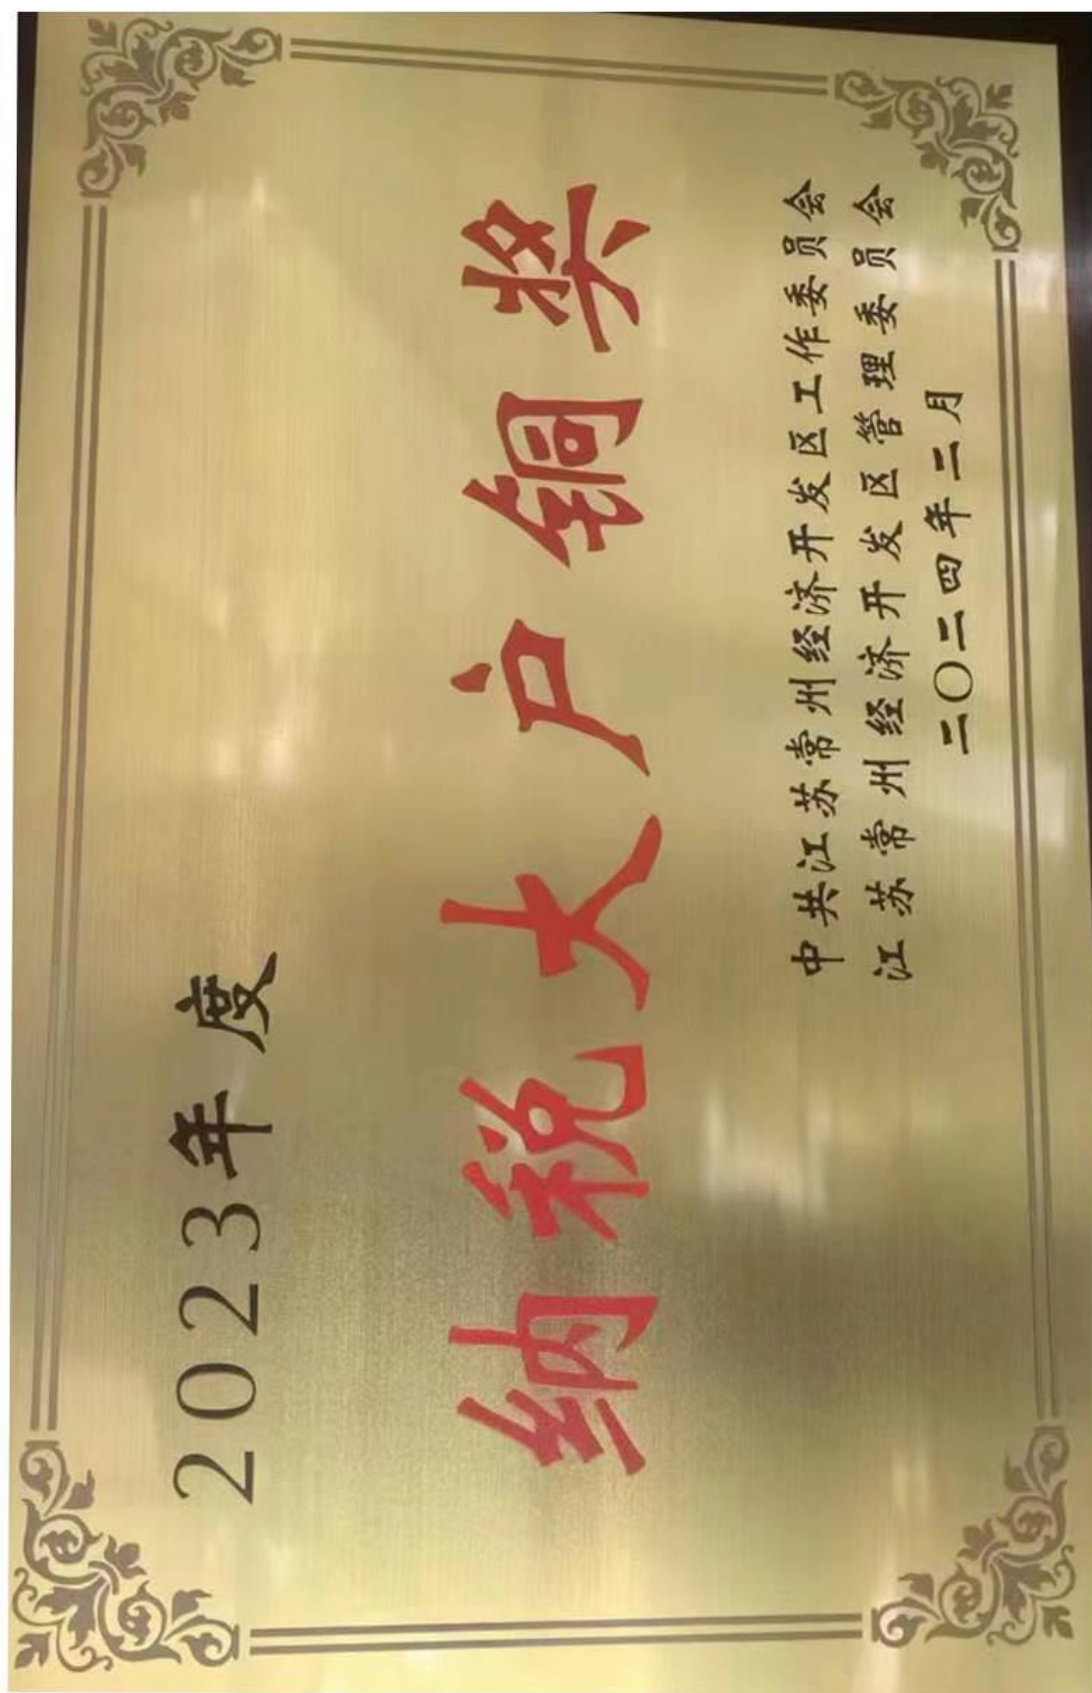 2023年度
纳税大户铜奖
中共江苏常州经济开发区工作委员会
江苏常州经济开发区管理委员会
二〇二四年二月